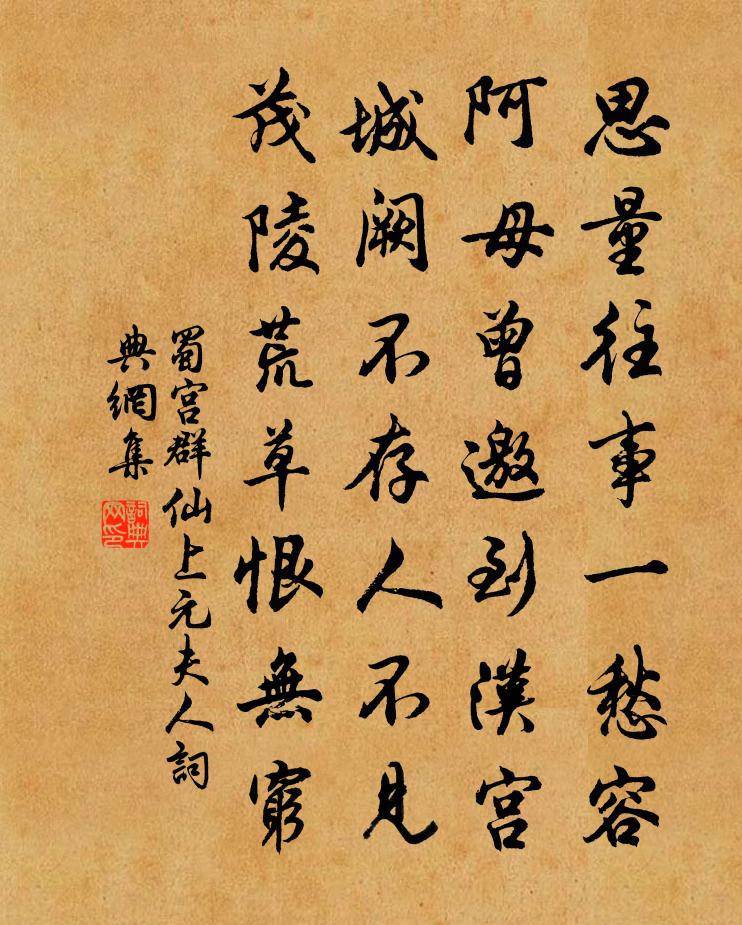 思量往事一愁容
阿母曾邀到漢宮
城闕不存人不見
茂陵荒草恨無窮
蜀宮群仙上元夫人詞
典網集
詞典網印